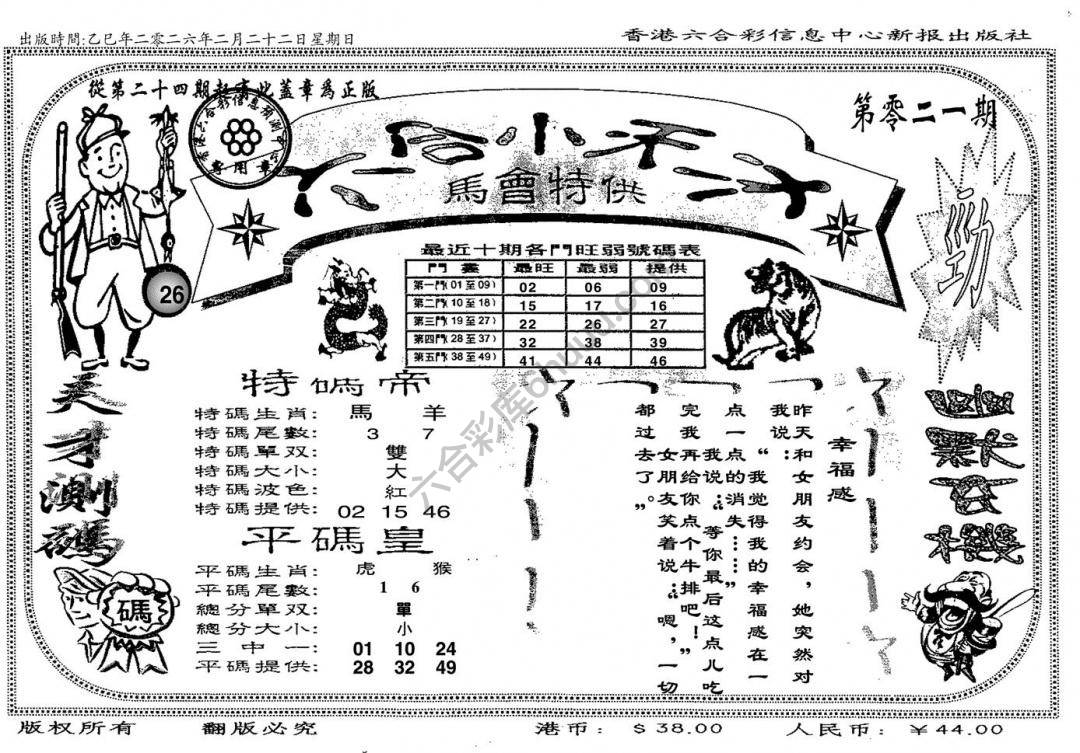 出版時間:乙巳年二零二六年二月二十二日星期日
香港六合彩信息中心新报出版社
從第二十四期起有此蓋章爲正版
香港六合彩信息預測中心
專用章
第零二一期
六合小禾二才
馬會特供
勁
26
最近十期各門旺弱號碼表
門 畫 最旺 最弱 提供
第一門(01至09) 02 06 09
第二門(10至18) 15 17 16
第三門(19至27) 22 26 27
第四門(28至37) 32 38 39
第五門(38至49) 41 44 46
天才測碼
碼
特碼帝
特碼生肖: 馬 羊
特碼尾數: 3 7
特碼單双: 雙
特碼大小: 大
特碼波色: 紅
特碼提供: 02 15 46
平碼皇
平碼生肖: 虎 猴
平碼尾數: 1 6
總分單双: 單
總分大小: 小
三中一: 01 10 24
平碼提供: 28 32 49
幸福感
昨天和女朋友约会,她突然对
我说:“我觉得我的幸福感在一
点一点的消失……”
我说:“等你最后这点儿吃
完我再给你点个牛排吧!”
女朋友笑着说:“嗯,一切
都过去了。”
玄機
六合彩库6huuu.com
版权所有 翻版必究 港币: $38.00 人民币: ¥44.00